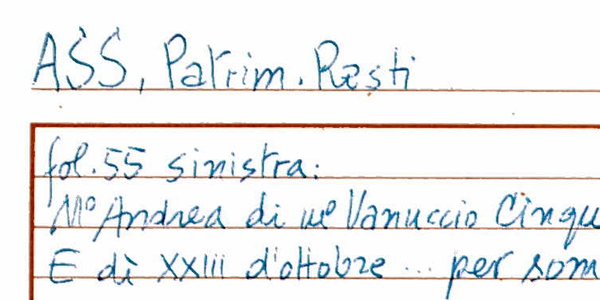 ASS, Patrim. Resti
fol. 55 sinistra:
Mº Andrea di mº Vanuccio Cinqu
E dì XXIII d'ottobre ... per som